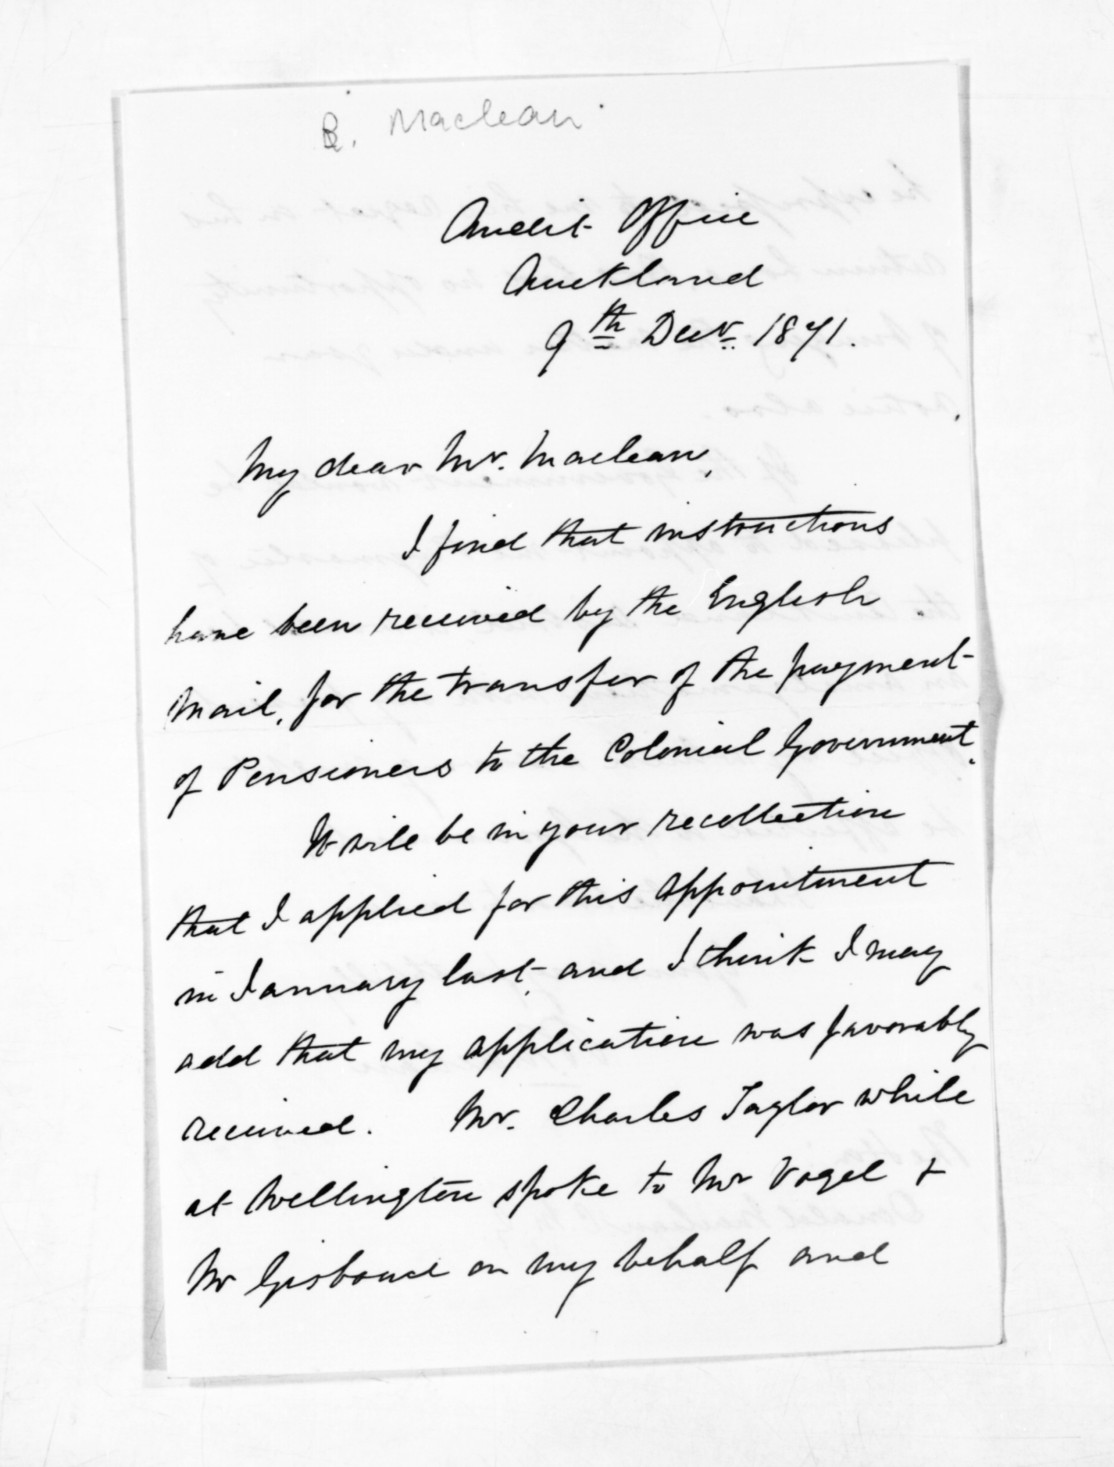 B. Maclean
Audit Office
Auckland
9th Decr. 1871.
My dear Mr. Maclean,
I find that instructions
have been received by the English
Mail, for the transfer of the payment
of Pensioners to the Colonial Government.
It will be in your recollection
that I applied for this appointment
in January last and I think I may
add that my application was favorably
received. Mr. Charles Taylor while
at Wellington spoke to Mr Vogel &
Mr Gisborne on my behalf and